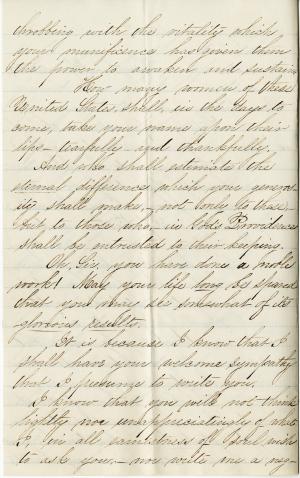 throbbing with the vitality which
your munificence has given them
the power to awaken and sustain
How many women of these
United States, shall, in the days to
come, take your name upon their
lips - tearfully and thankfully.
And who shall estimate the
eternal difference which your generos-
ity shall make, - not only to these
but to those who, - in God's Providence
shall be entrusted to their keeping.
Oh, Sir, you have done a noble
work! May your life long be spared
that you may see somewhat of its
glorious results.
It is because I know that I
shall have your welcome sympathy
that I presume to write you.
I know that you will not think
lightly nor unappreciatingly of what
I, in all earnestness of soul wish
to ask you, - nor write me a neg-